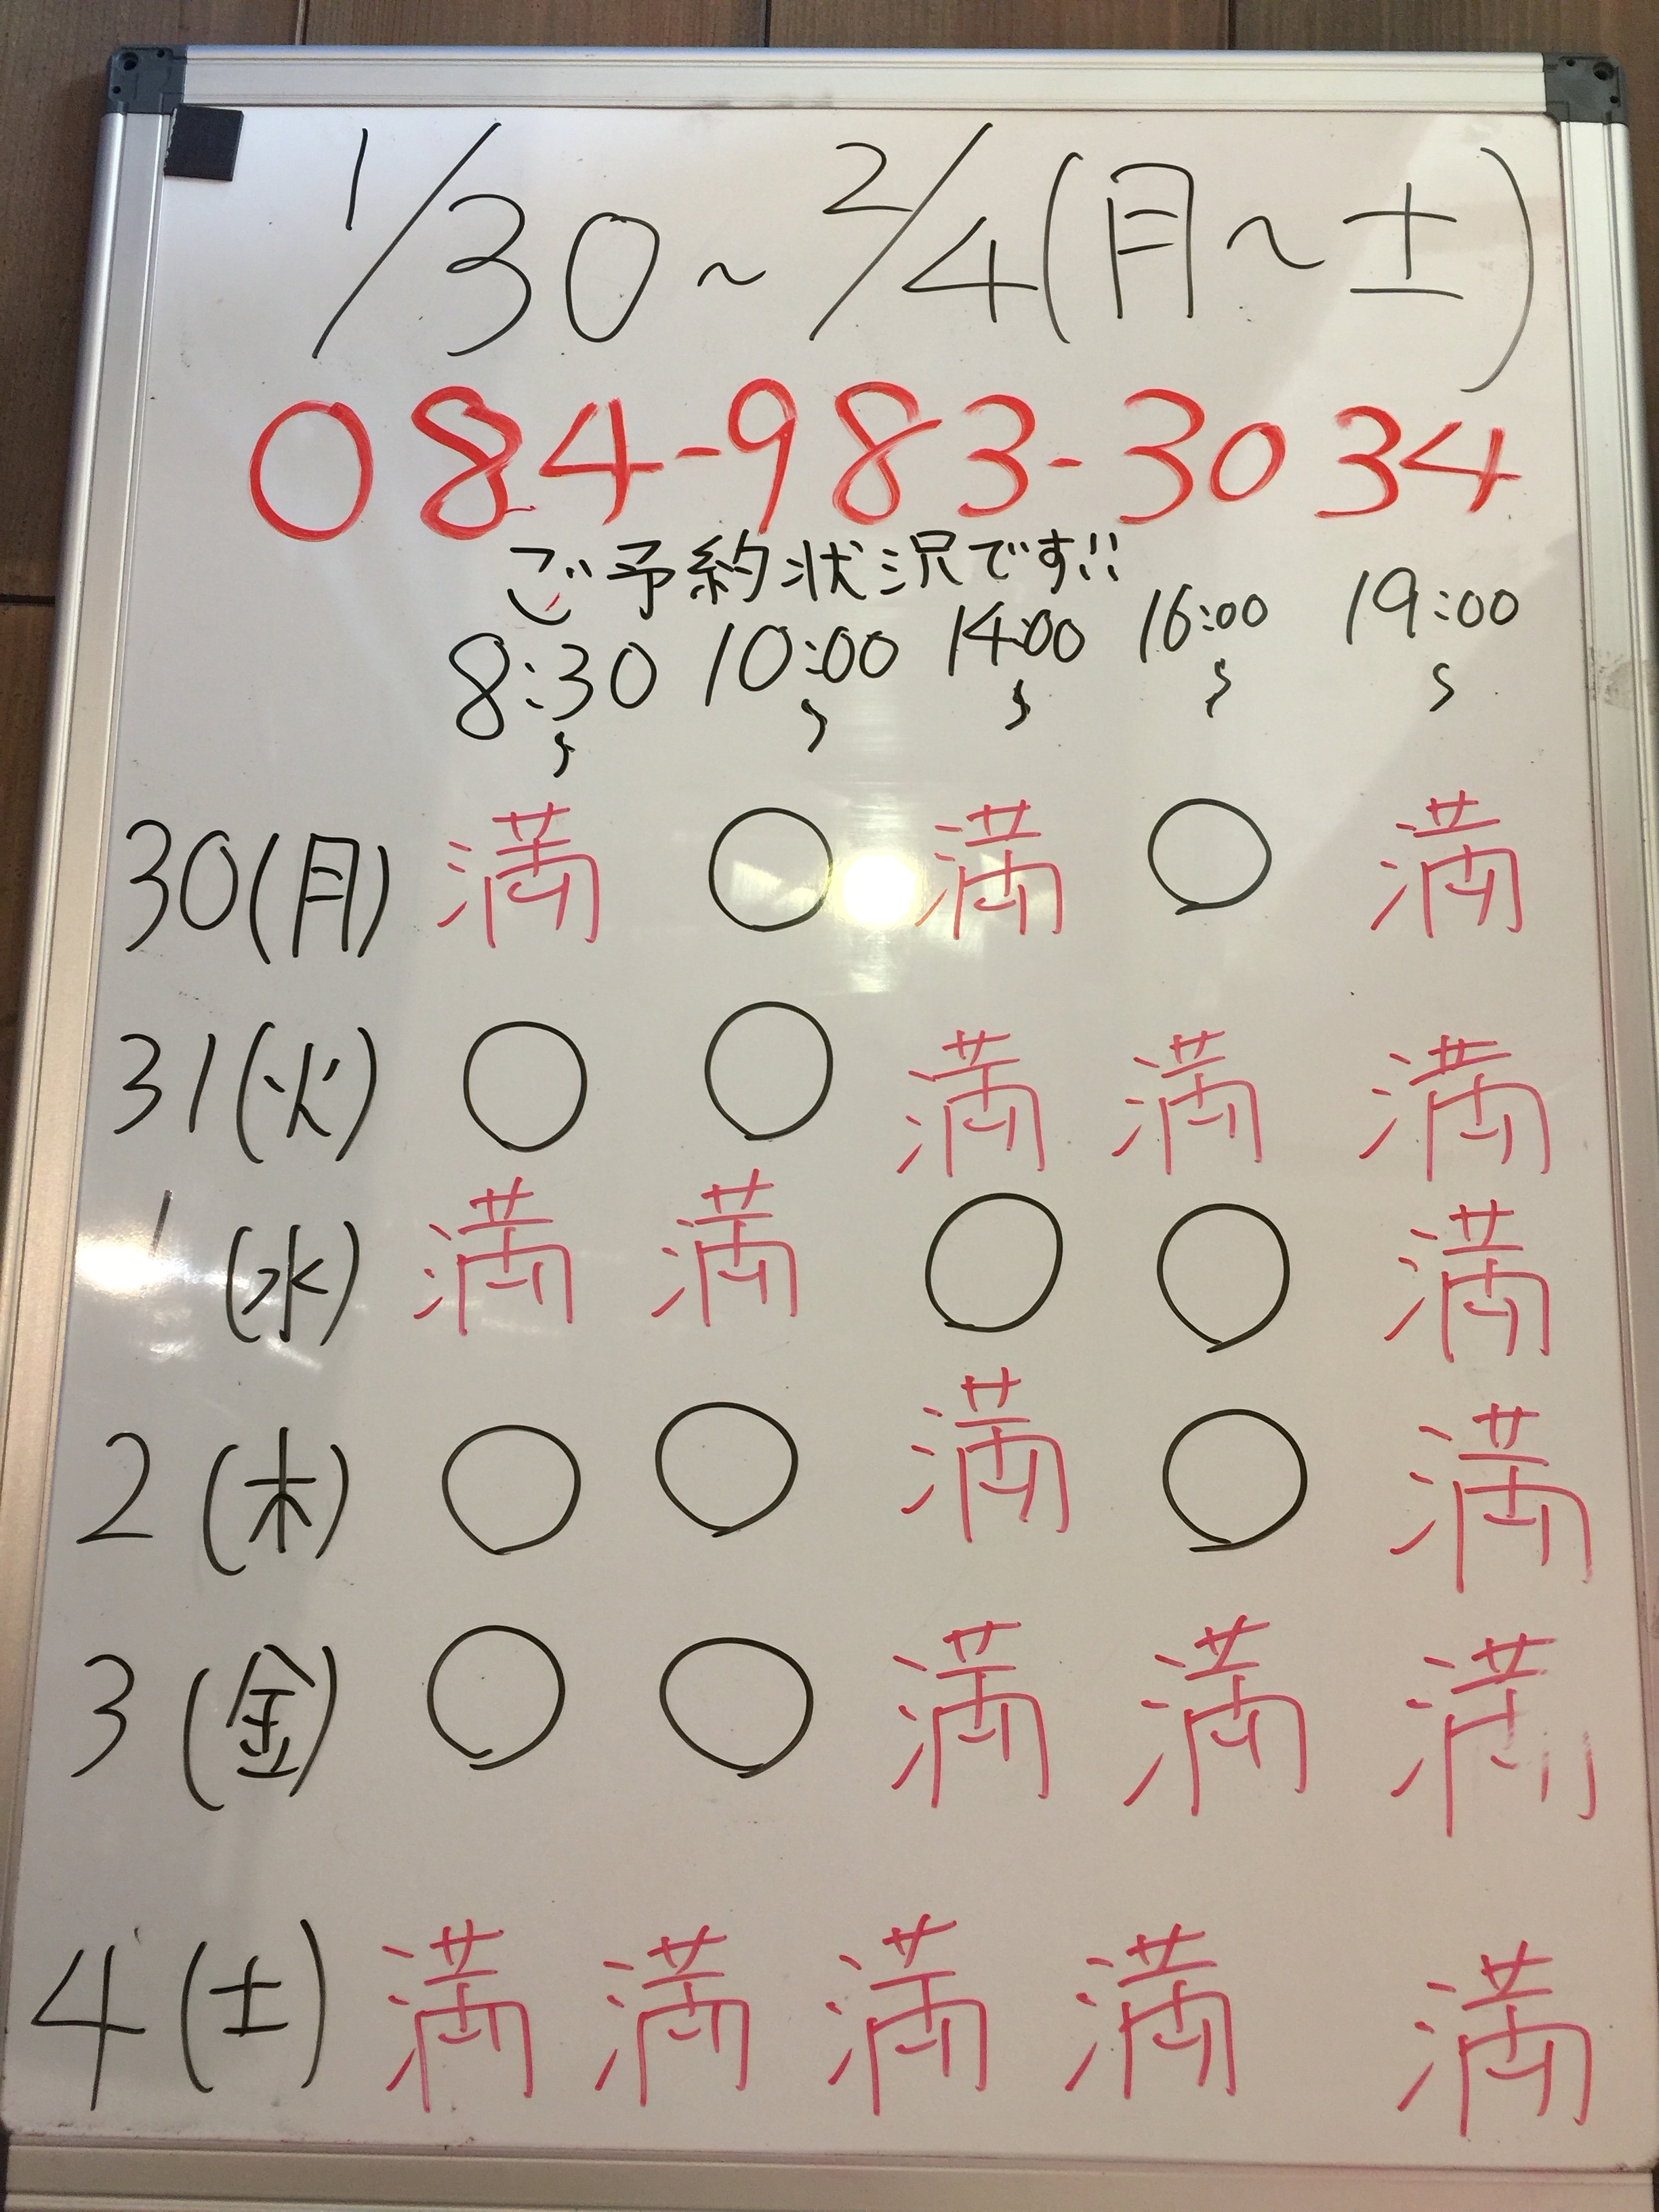 1/30~2/4(月~土)
084-983-3034
ご予約状況です!!
8:30~ 10:00~ 14:00~ 16:00~ 19:00~
30(月) 満 ○ 満 ○ 満
31(火) ○ ○ 満 満 満
1(水) 満 満 ○ ○ 満
2(木) ○ ○ 満 ○ 満
3(金) ○ ○ 満 満 満
4(土) 満 満 満 満 満